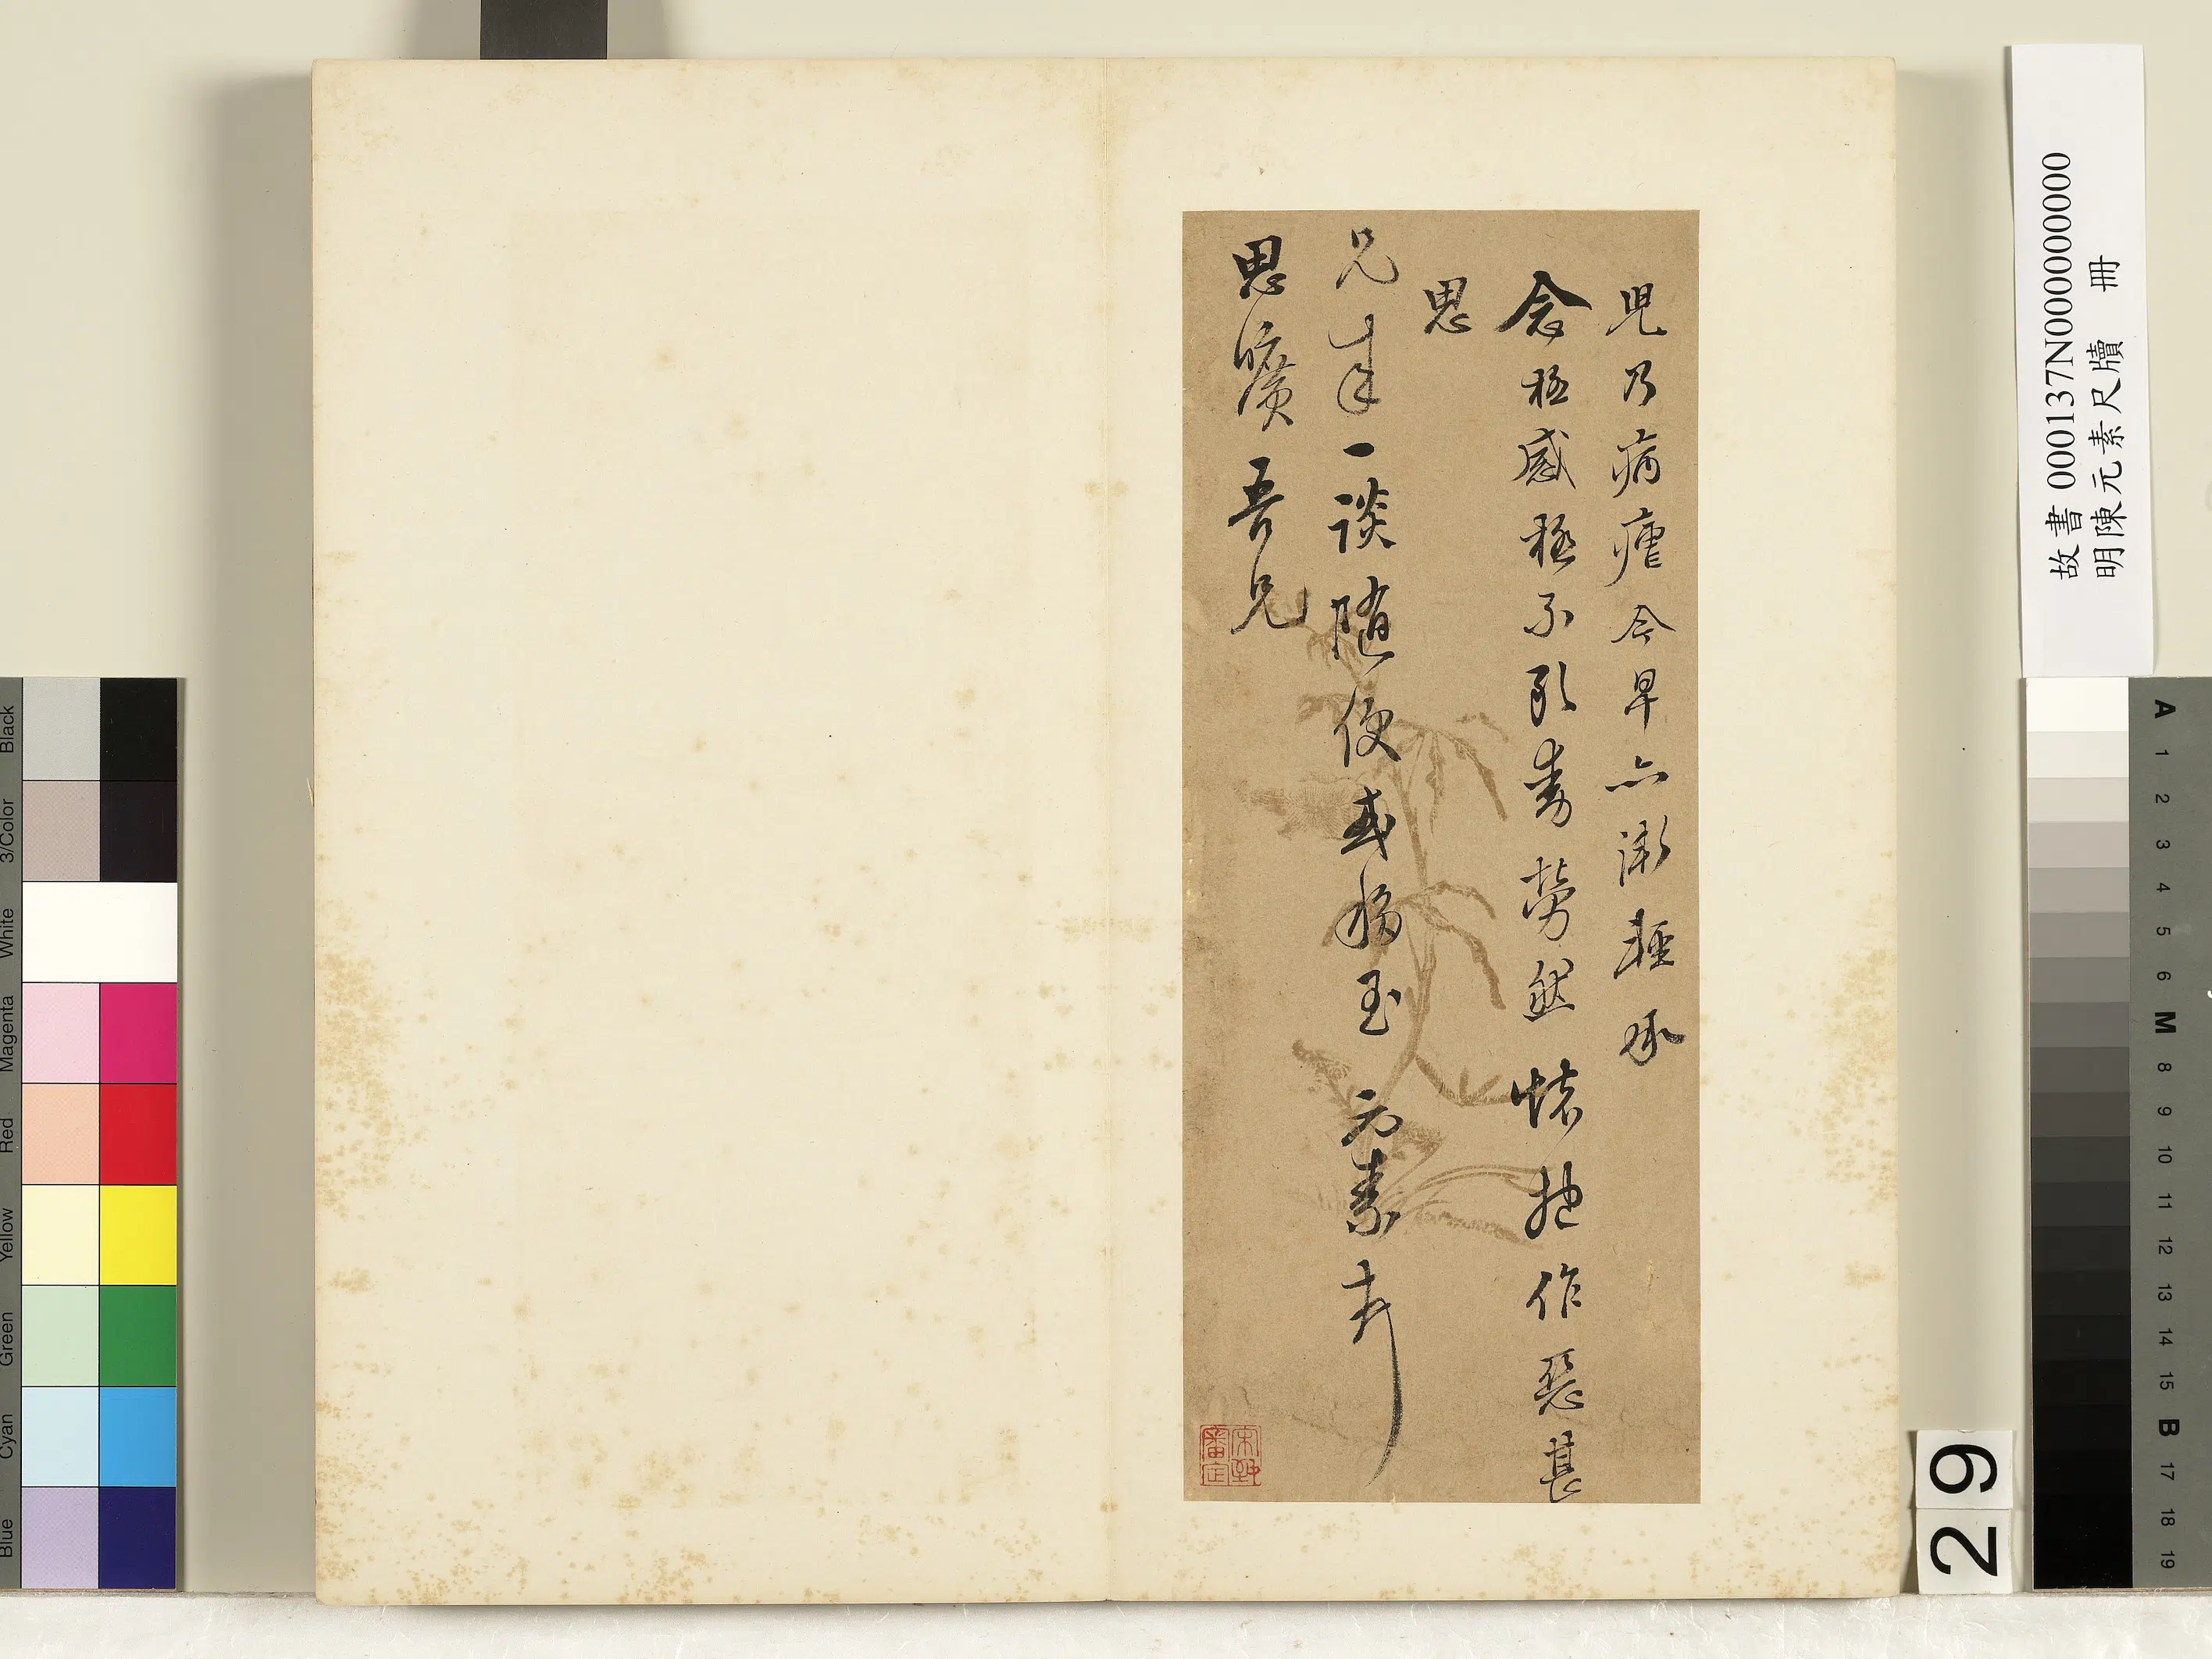 兒乃病瘧今早亦漸輕承
念極感極不敢奉勞然懷抱作惡甚
思
兄來一談隨便或移玉 元素頓
思曠吾兄
故書 000137N000000000
明陳元素尺牘 冊
29
Black
3/Color
White
Magenta
Red
Yellow
Green
Cyan
Blue
A
1
2
3
4
5
6
M
8
9
10
11
12
13
14
15
B
17
18
19